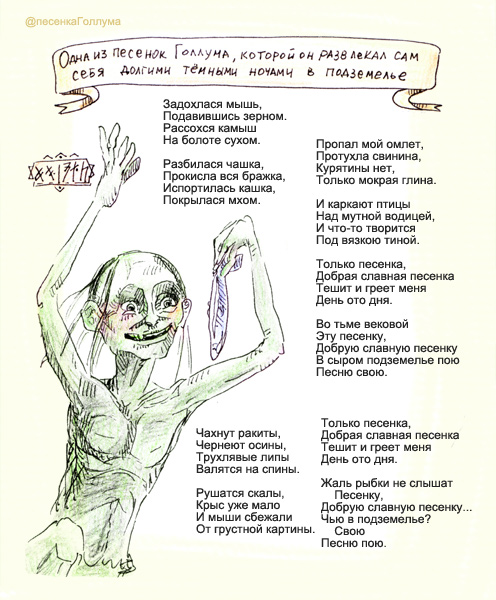 @песенкаГоллума
Одна из песенок Голлума, которой он развлекал сам
себя долгими тёмными ночами в подземелье
Задохлася мышь,
Подавившись зерном.
Рассохся камыш
На болоте сухом.
Разбилася чашка,
Прокисла вся бражка,
Испортилась кашка,
Покрылася мхом.
Пропал мой омлет,
Протухла свинина,
Курятины нет,
Только мокрая глина.
И каркают птицы
Над мутной водицей,
И что-то творится
Под вязкою тиной.
Только песенка,
Добрая славная песенка
Тешит и греет меня
День ото дня.
Во тьме вековой
Эту песенку,
Добрую славную песенку
В сыром подземелье пою
Песню свою.
Чахнут ракиты,
Чернеют осины,
Трухлявые липы
Валятся на спины.
Рушатся скалы,
Крыс уже мало
И мыши сбежали
От грустной картины.
Только песенка,
Добрая славная песенка
Тешит и греет меня
День ото дня.
Жаль рыбки не слышат
Песенку,
Добрую славную песенку...
Чью в подземелье?
Свою
Песню пою.